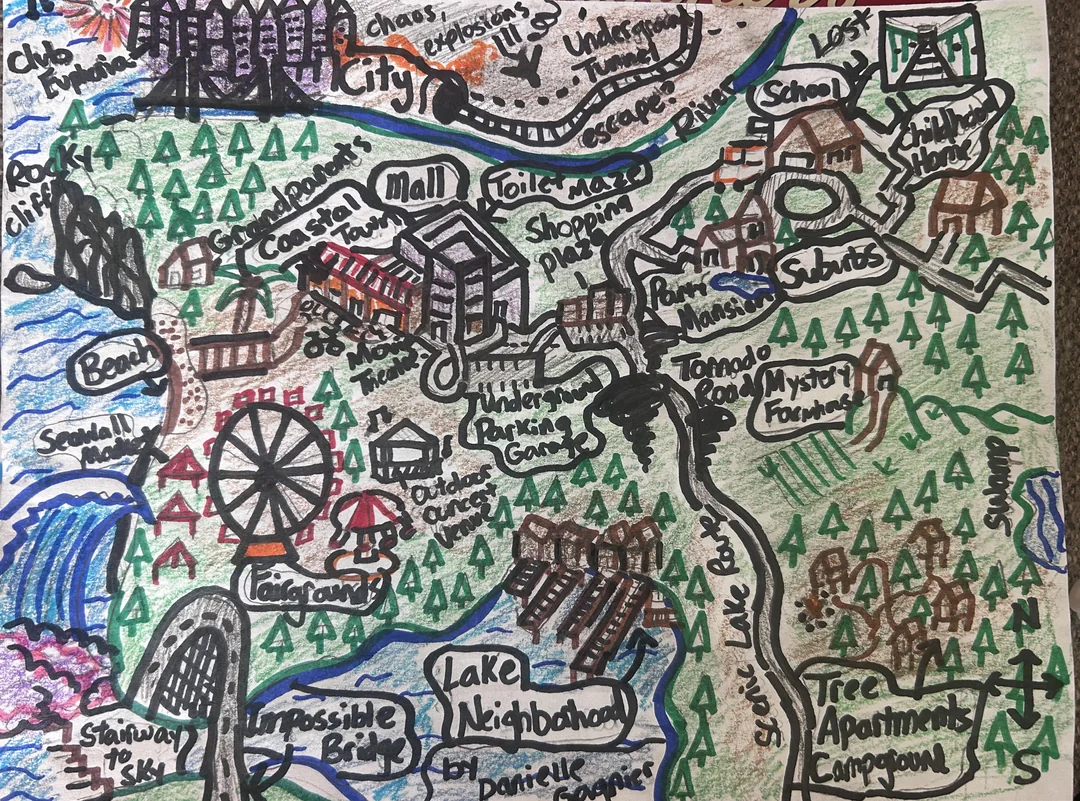 Club
Euphoria
chaos,
explosions
!!!
City
Underground
Tunnel
escape?
River
Lost
School
Childhood
Home
Rocky
Cliff
Grandparents
Coastal
Town
Mall
Toilet Maze
Shopping
Plaza
Party
Mansion
Suburbs
Beach
Movie
Theatre
Tornado
Road
Mystery
Farmhouse
Underground
Parking
Garage
Seawall
Outdoor
Concert
Venue
Swamp
Fairgrounds
Scenic Lake Route
N
Lake
Neighborhood
Impossible
Bridge
Stairway
to
Sky
Tree
Apartments
Campground
S
by
Danielle
Gagnier